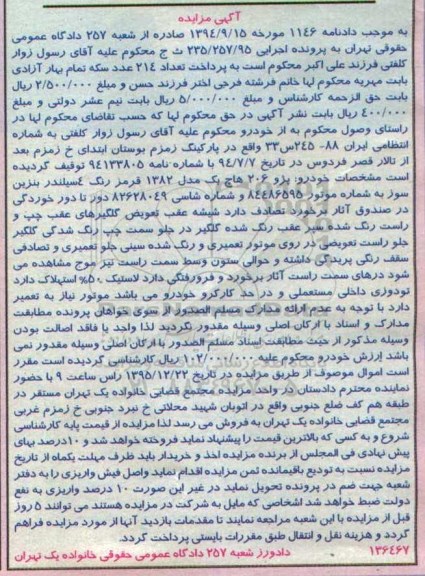 آگهی مزایده
به موجب دادنامه ۱۱۴۶ مورخه ۱۳۹۴/۹/۱۵ صادره از شعبه ۲۵۷ دادگاه عمومی
حقوقی تهران به پرونده اجرایی ۲۳۵/۲۵۷/۹۵ ث ج محکوم علیه آقای رسول زوار
کلفتی فرزند علی اکبر محکوم است به پرداخت تعداد ۲۱۴ عدد سکه تمام بهار آزادی
بابت مهریه محکوم لها خانم فرشته فرجی اختر فرزند حسن و مبلغ ۲/۵۰۰/۰۰۰ ریال
بابت حق الزحمه کارشناس و مبلغ ۵/۰۰۰/۰۰۰ ریال بابت نیم عشر دولتی و مبلغ
۴۰۰/۰۰۰ ریال بابت نشر آگهی در حق محکوم لها که حسب تقاضای محکوم لها در
راستای وصول محکوم به از خودرو محکوم علیه آقای رسول زوار کلفتی به شماره
انتظامی ایران ۸۸- ۲۴۵س۳۳ واقع در پارکینگ زمزم بوستان ابتدای خ زمزم بعد
از تالار قصر فردوس در تاریخ ۹۴/۷/۷ با شماره نامه ۹۴۱۳۳۸۰۵ توقیف گردیده
است مشخصات خودرو: پژو ۲۰۶ هاچ بک مدل ۱۳۸۲ قرمز رنگ ۴سیلندر بنزین
سوز به شماره موتور۸۴۴۸۶۵۹۵ و شماره شاسی ۸۲۶۲۸۰۴۹ دور تا دور خوردگی
در صندوق آثار برخورد تصادف دارد شیشه عقب تعویض گلگیرهای عقب چپ و
راست رنگ شده سپر عقب رنگ شده گلگیر در جلو سمت چپ رنگ شدگی گلگیر
جلو راست تعویضی در روی موتور تعمیری و رنگ شده سینی جلو تعمیری و تصادفی
سقف رنگی پریدگی داشته و حوالی ستون وسط سمت راست نیز موج مشاهده می
شود درهای سمت راست آثار برخورد و فرورفتگی دارد لاستیک ۵۰٪ استهلاک دارد
تودوزی داخلی مستعملی و در حد کارکرو خودرو می باشد موتور نیاز به تعمیر
دارد با توجه به عدم ارائه مدارک مسلم الصدور از سوی خواهان پرونده مطابقت
مدارک و اسناد با ارکان اصلی وسیله مقدور نگردید لذا واجد یا فاقد اصالت بودن
وسیله مذکور از حیث مطابقت اسناد مسلم الصدور با ارکان اصلی وسیله مقدور نمی
باشد ارزش خودرو محکوم علیه ۱۰۲/۰۰۰/۰۰۰ ریال کارشناسی گردیده است مقرر
است اموال موصوف از طریق مزایده در تاریخ ۱۳۹۵/۱۲/۲۲ راس ساعت ۹ با حضور
نماینده محترم دادستان در واحد مزایده مجتمع قضایی خانواده یک تهران مستقر در
طبقه هم کف ضلع جنوبی واقع در اتوبان شهید محلاتی خ نبرد جنوبی خ زمزم غربی
مجتمع قضایی خانواده یک تهران به فروش می رسد لذا مزایده از قیمت پایه کارشناسی
شروع و به کسی که بالاترین قیمت را پیشنهاد نماید فروخته خواهد شد و ۱۰درصد بهای
پیش نهادی فی المجلس از برنده مزایده اخذ و خریدار باید ظرف مهلت یکماه از تاریخ
مزایده نسبت به تودیع باقیمانده ثمن مزایده اقدام نماید واصل فیش واریزی را به دفتر
شعبه جهت ضم در پرونده تحویل نماید در غیر این صورت ۱۰ درصد واریزی به نفع
دولت ضبط خواهد شد اشخاصی که مایل به شرکت در مزایده هستند می توانند ۵ روز
قبل از مزایده با این شعبه مراجعه نمایند تا مقدمات بازدید آنها از مورد مزایده فراهم
گردد و هزینه نقل و انتقال طبق مقررات بایستی پرداخت گردد.
۱۳۶۴۶۷ دادورز شعبه ۲۵۷ دادگاه عمومی حقوقی خانواده یک تهران